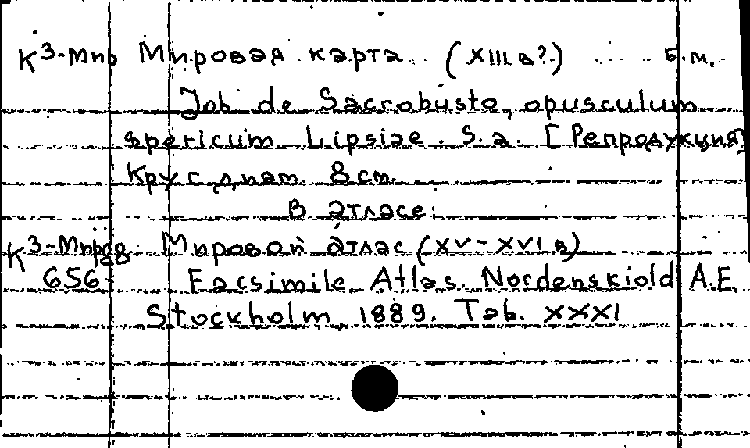 К3-Мир Мировая карта (XIII в?) Б.м.
Joh de Sacrobusto, opusculum
spericum Lipsiae. S.a. [Репродукция]
Круг диам. 8 см.
В атласе:
К3-Мир Мировой атлас (XV-XVI в)
656 Facsimile Atlas Nordenskiold A.E
Stockholm 1889. Tab. XXXI